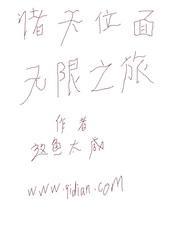 诸天位面
无限之旅
作者
鱼大威
www.qidian.com